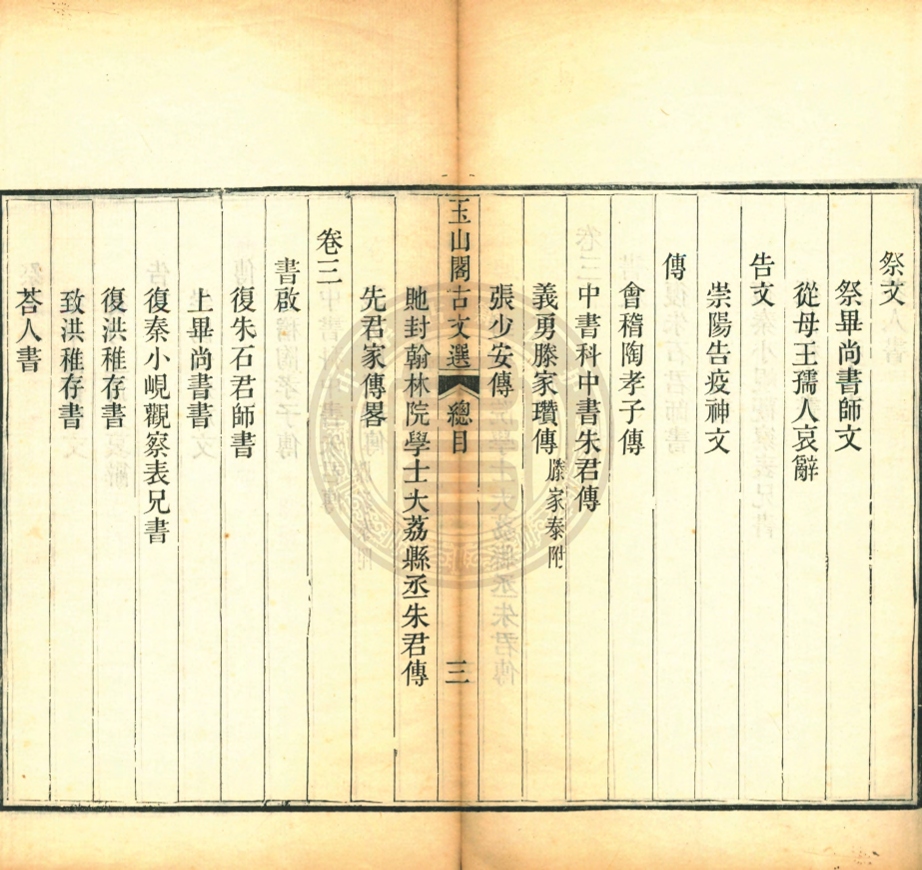 祭文
祭畢尚書師文
從母王孺人哀辭
告文
崇陽告疫神文
傳
會稽陶孝子傳
中書科中書朱君傳
義勇滕家瓚傳 滕家泰附
張少安傳
玉山閣古文選 總目 三
貤封翰林院學士大荔縣丞朱君傳
先君家傳畧
卷三
書啟
復朱石君師書
上畢尚書書
復秦小峴觀察表兄書
復洪稚存書
致洪稚存書
荅人書